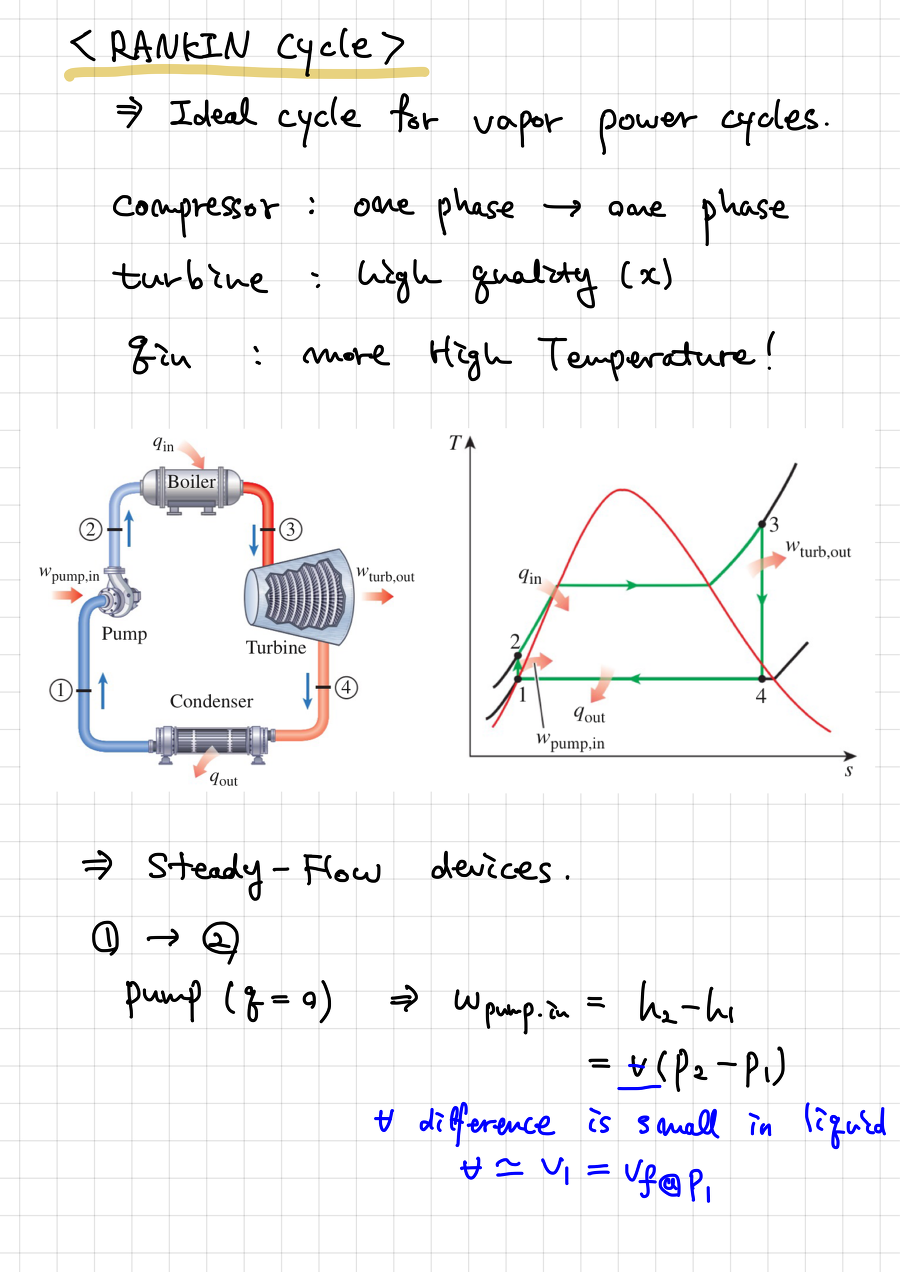 < RANKIN cycle >
⇒ Ideal cycle for vapor power cycles.
compressor : one phase → one phase
turbine : high quality (x)
qin : more High Temperature!
qin
Boiler
②
③
wpump,in
wturb,out
Pump
Turbine
①
④
Condenser
qout
T
3
wturb,out
qin
2
1
4
qout
wpump,in
s
⇒ Steady-Flow devices.
① → ②
pump (q = 0) ⇒ wpump.in = h₂-h₁
= v(P₂-P₁)
v difference is small in liquid
v ≃ v₁ = vf@P₁